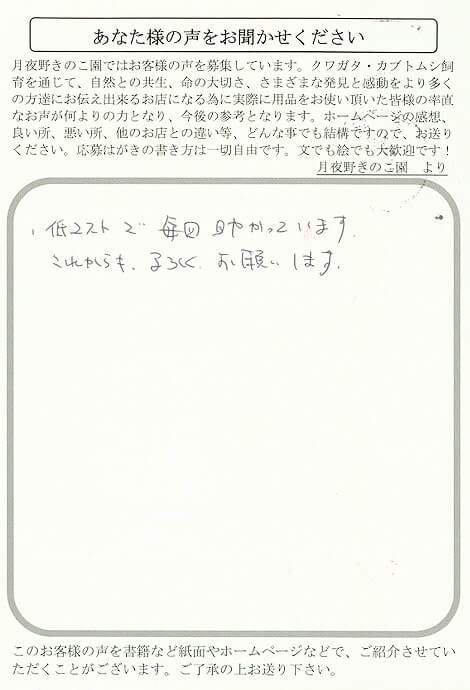 あなた様の声をお聞かせください
月夜野きのこ園ではお客様の声を募集しています。クワガタ・カブトムシ飼
育を通じて、自然との共生、命の大切さ、さまざまな発見と感動をより多く
の方達にお伝え出来るお店になる為に実際に用品をお使い頂いた皆様の率直
なお声が何よりの力となり、今後の参考となります。ホームページの感想、
良い所、悪い所、他のお店との違い等、どんな事でも結構ですので、お送り
ください。応募はがきの書き方は一切自由です。文でも絵でも大歓迎です！
月夜野きのこ園　より
低コストで 毎回 助かっています。
これからも、よろしく お願いします。
このお客様の声を書籍など紙面やホームページなどで、ご紹介させてい
ただくことがございます。ご了承の上お送り下さい。